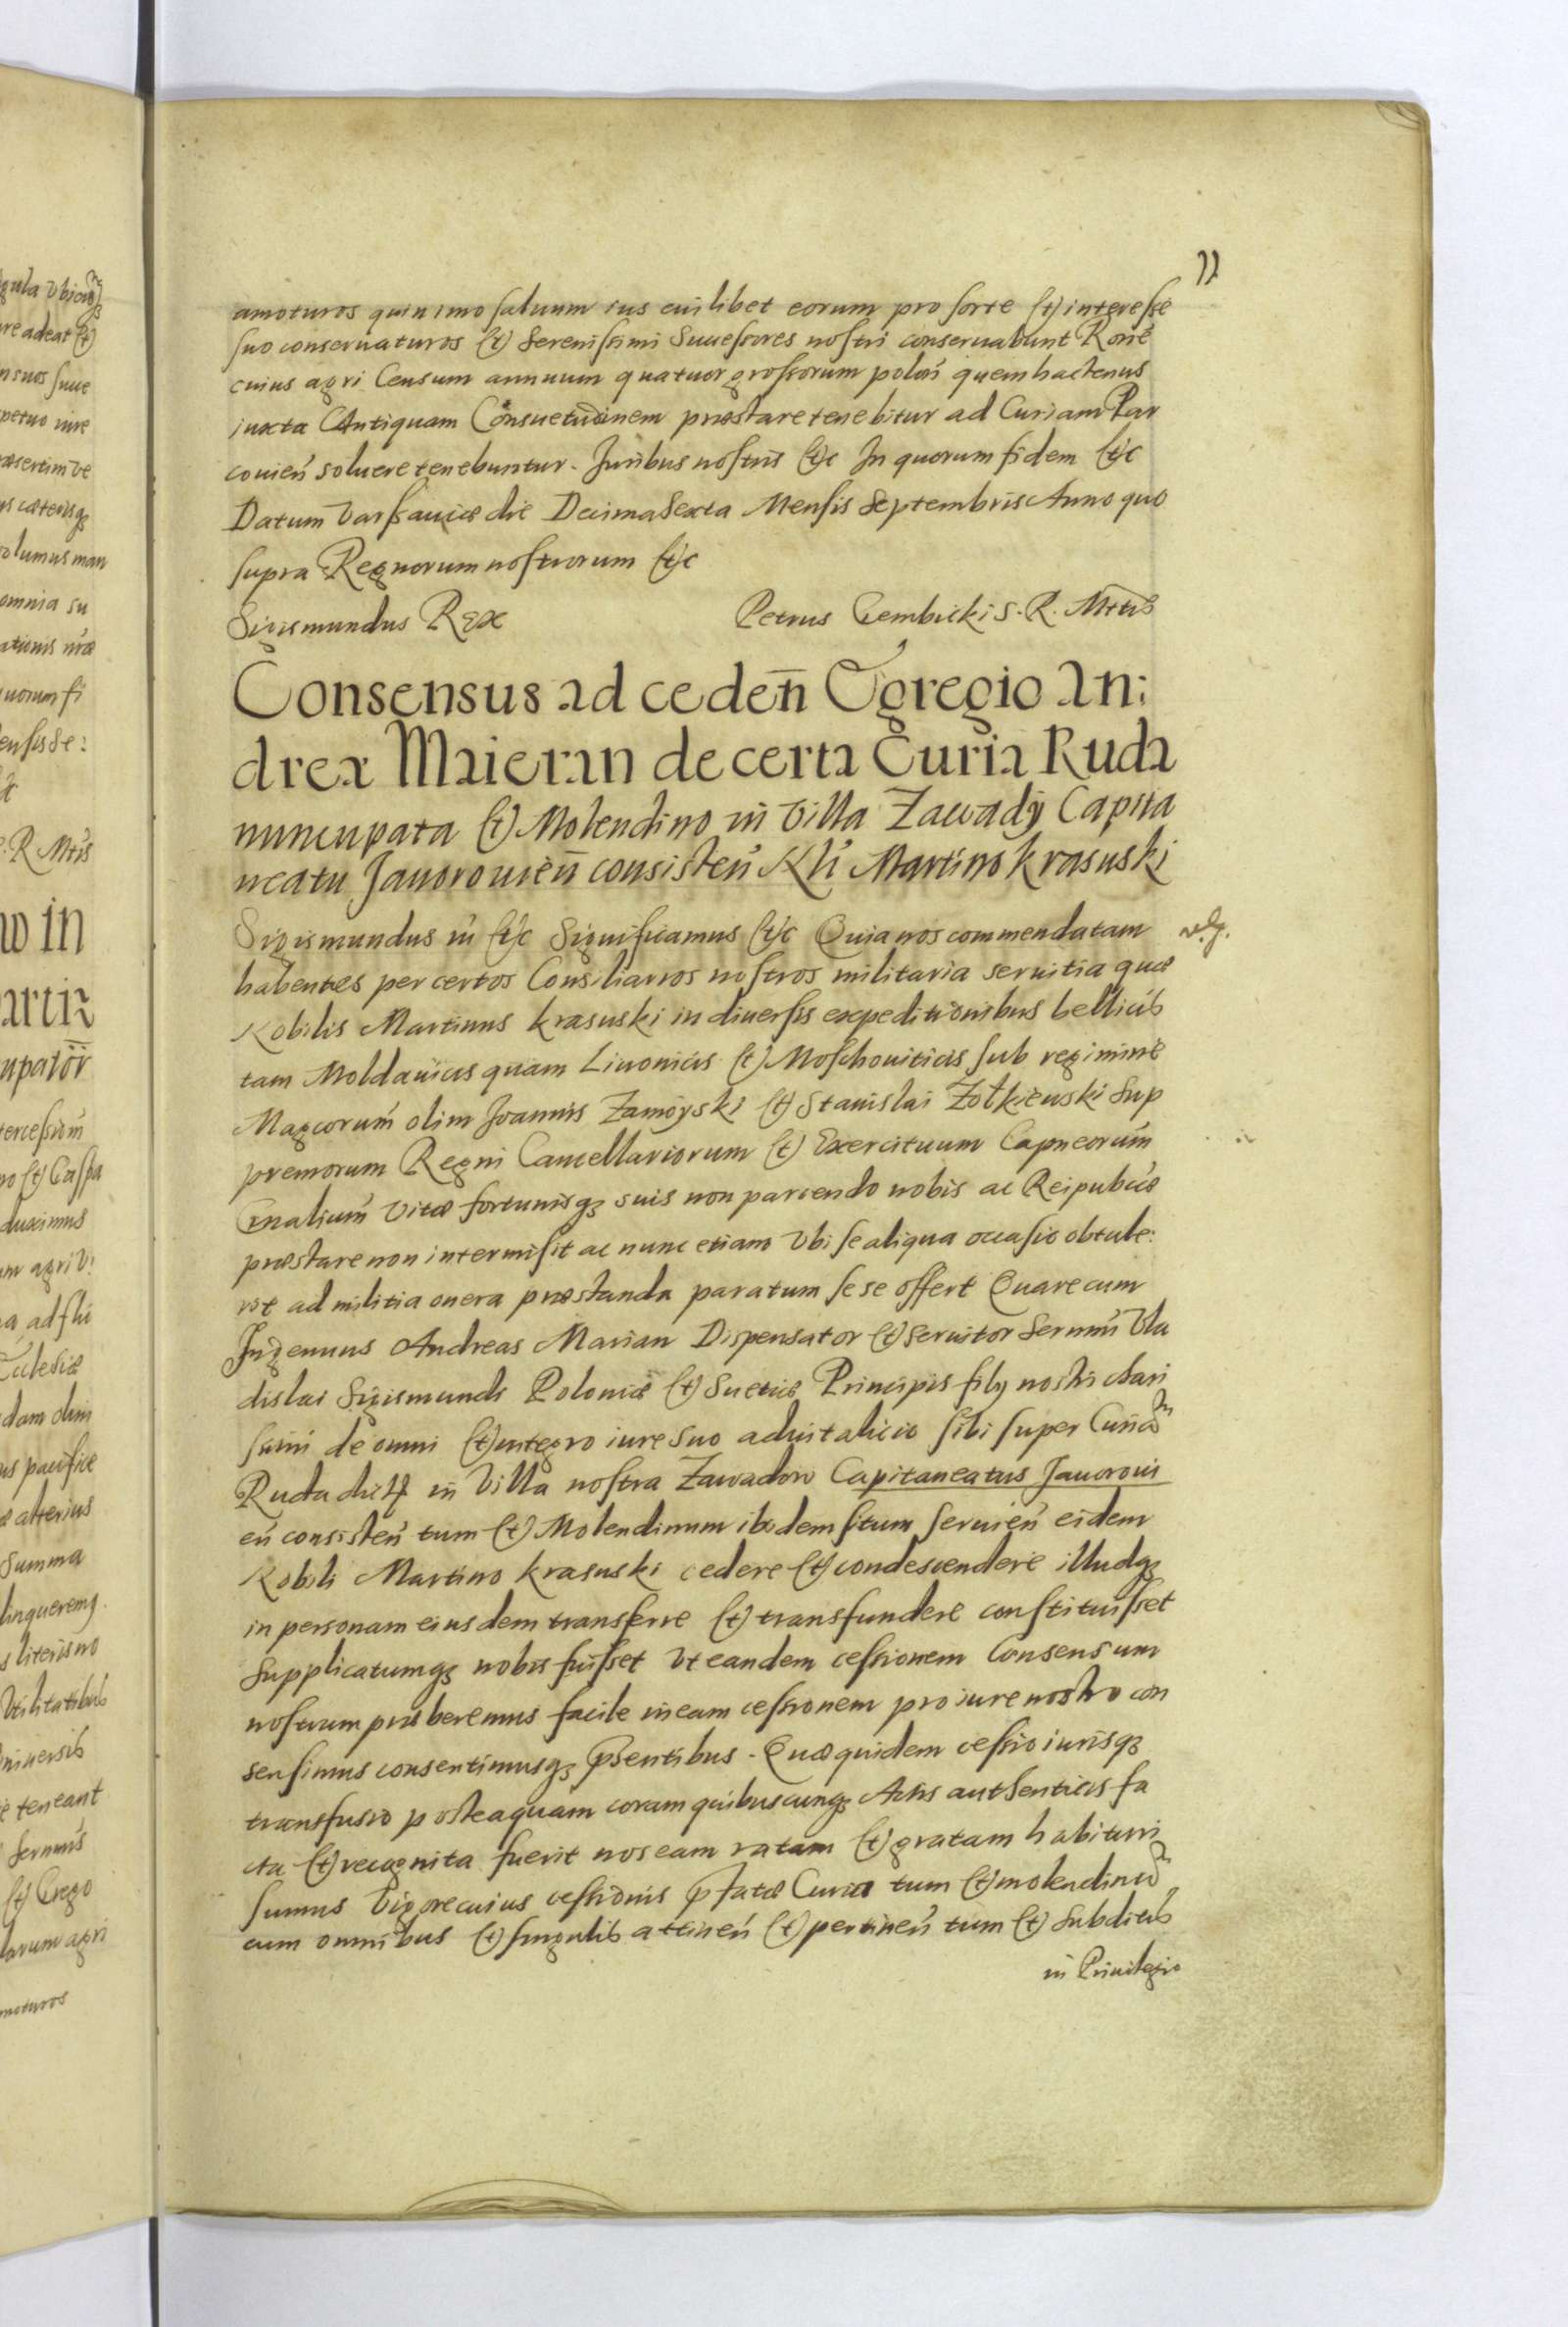 11
amoturos quin imo saluum ius cuilibet eorum pro sorte (et) interesse
suo conseruaturos (et) Serenissimi Successores nostri conseruabunt Rone
cuius agri Censum annuum quatuor grossorum polon̄ quem hactenus
iuxta Antiquam Consuetudinem præstare tenebitur ad Curiam Par
couien̄ soluere tenebuntur. Juribus nostris (et)c In quorum fidem (et)c
Datum Varsauiæ die Decima Sexta Mensis Septembris Anno quo
supra Regnorum nostrorum (et)c
Sigismundus Rex Petrus Gembicki S. R. Mttis
Consensus ad ceden̄ Egregio An:
dreæ Maieran de certa Curia Ruda
nuncupata (et) Molendino in Villa Zawady Capita
neatu Jauorouien̄ consisten̄ Nli Martino krasuski
Sigismundus III (et)c Significamus (et)c Quia nos commendatam
habentes per certos Consiliarios nostros militaria seruitia quæ
Nobilis Martinus krasuski in diuersis expeditionibus bellicis
tam Moldauicis quam Liuonicis (et) Moschouiticis sub regimine
Magcorum olim Joannis Zamoyski (et) Stanislai Zołkiewski Sup
premorum Regni Cancellariorum (et) Exercituum Capneorum
Gnalium vitæ fortunisq3 suis non parcendo nobis ac Reipublicæ
præstare non intermisit ac nunc etiam Vbi se aliqua occasio obtule:
rit ad militia onera præstanda paratum sese offert Quare cum
Ingenuus Andreas Marian Dispensator (et) Seruitor Sermi Vla
dislai Sigismundi Poloniæ (et) Suetiæ Principis filij nostri chari
ssimi de omni (et) integro iure suo aduitalicio sibi super Curiam
Ruda dicta in Villa nostra Zawadow Capitaneatus Jauoroui
en̄ consisten̄ tum (et) Molendinum ibidem situm seruien̄ eidem
Nobili Martino krasuski cedere (et) condescendere illudq3
in personam eiusdem transferre (et) transfundere constituisset
Supplicatumq3 nobis fuisset Vt eandem cessionem Consensum
nostrum præberemus facile in eam cessionem pro iure nostro con
sensimus consentimusq3 pñsentibus. Quæ quidem cessio iurisq3
transfusio posteaquam coram quibuscunq3 Actis authenticis fa
cta (et) recognita fuerit nos eam ratam (et) gratam habituri
sumus Vigore cuius cessionis pfatæ Curiæ tum (et) molendinum
cum omnibus (et) singulis attinen̄ (et) pertinen̄ tum (et) Subditis
in Priuilegio